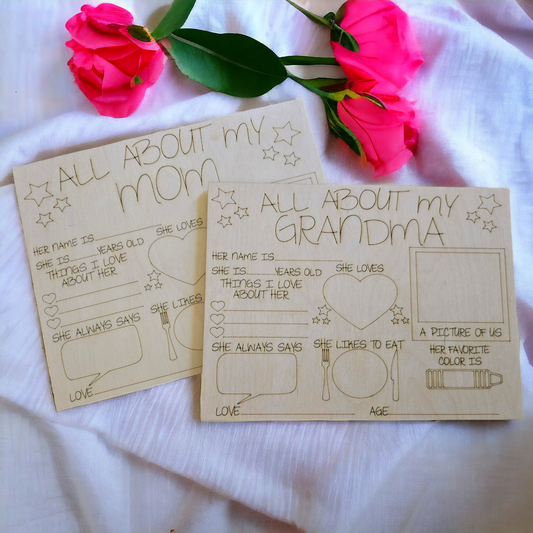 ALL ABOUT MY
MOM
HER NAME IS
SHE IS YEARS OLD
THINGS I LOVE
ABOUT HER
SHE LOVES
SHE ALWAYS SAYS
SHE LIKES
LOVE
ALL ABOUT MY
GRANDMA
HER NAME IS
SHE IS YEARS OLD
THINGS I LOVE
ABOUT HER
SHE LOVES
A PICTURE OF US
SHE ALWAYS SAYS
SHE LIKES TO EAT
HER FAVORITE
COLOR IS
LOVE
AGE